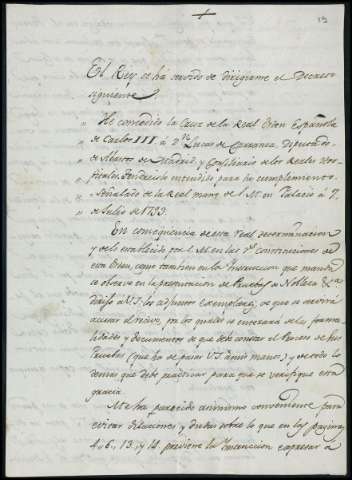 19
El Rey se ha servido de dirigirme el Decreto
siguiente.
„ He concedido la Cruz de la Real Orden Española
„ de Carlos III. á Dn Lucas de Carranza, Diputado
„ de Abastos de Madrid, y Consiliario de los Reales Hos-
„ pitales. Tendráse lo entendido para su cumplimiento.
„ Señalado de la Real mano de S.M. en Palacio á 7.
„ de Julio de 1793.
En consequencia de esta Real determinacion
y de lo establecido por S.M. en las Rs. Constituciones de
esta Orden, como tambien en la Instruccion que manda
se observe en la presentacion de Pruebas de Nobleza &a
dirijo á V.S. los adjuntos Exemplares, de que se servirá
acusar el recivo, por los quales se enterará de las forma-
lidades y documentos de que debe constar el Proceso de sus
Pruebas (que ha de pasar V.S. á mis manos) y de todo lo
demas que debe practicar para que se verifique esta
gracia.
Me ha parecido asimismo conveniente para
evitar dilaciones, y dudas sobre lo que en las paginas
4, 6, 13, y 14. previene la Instruccion expresar á